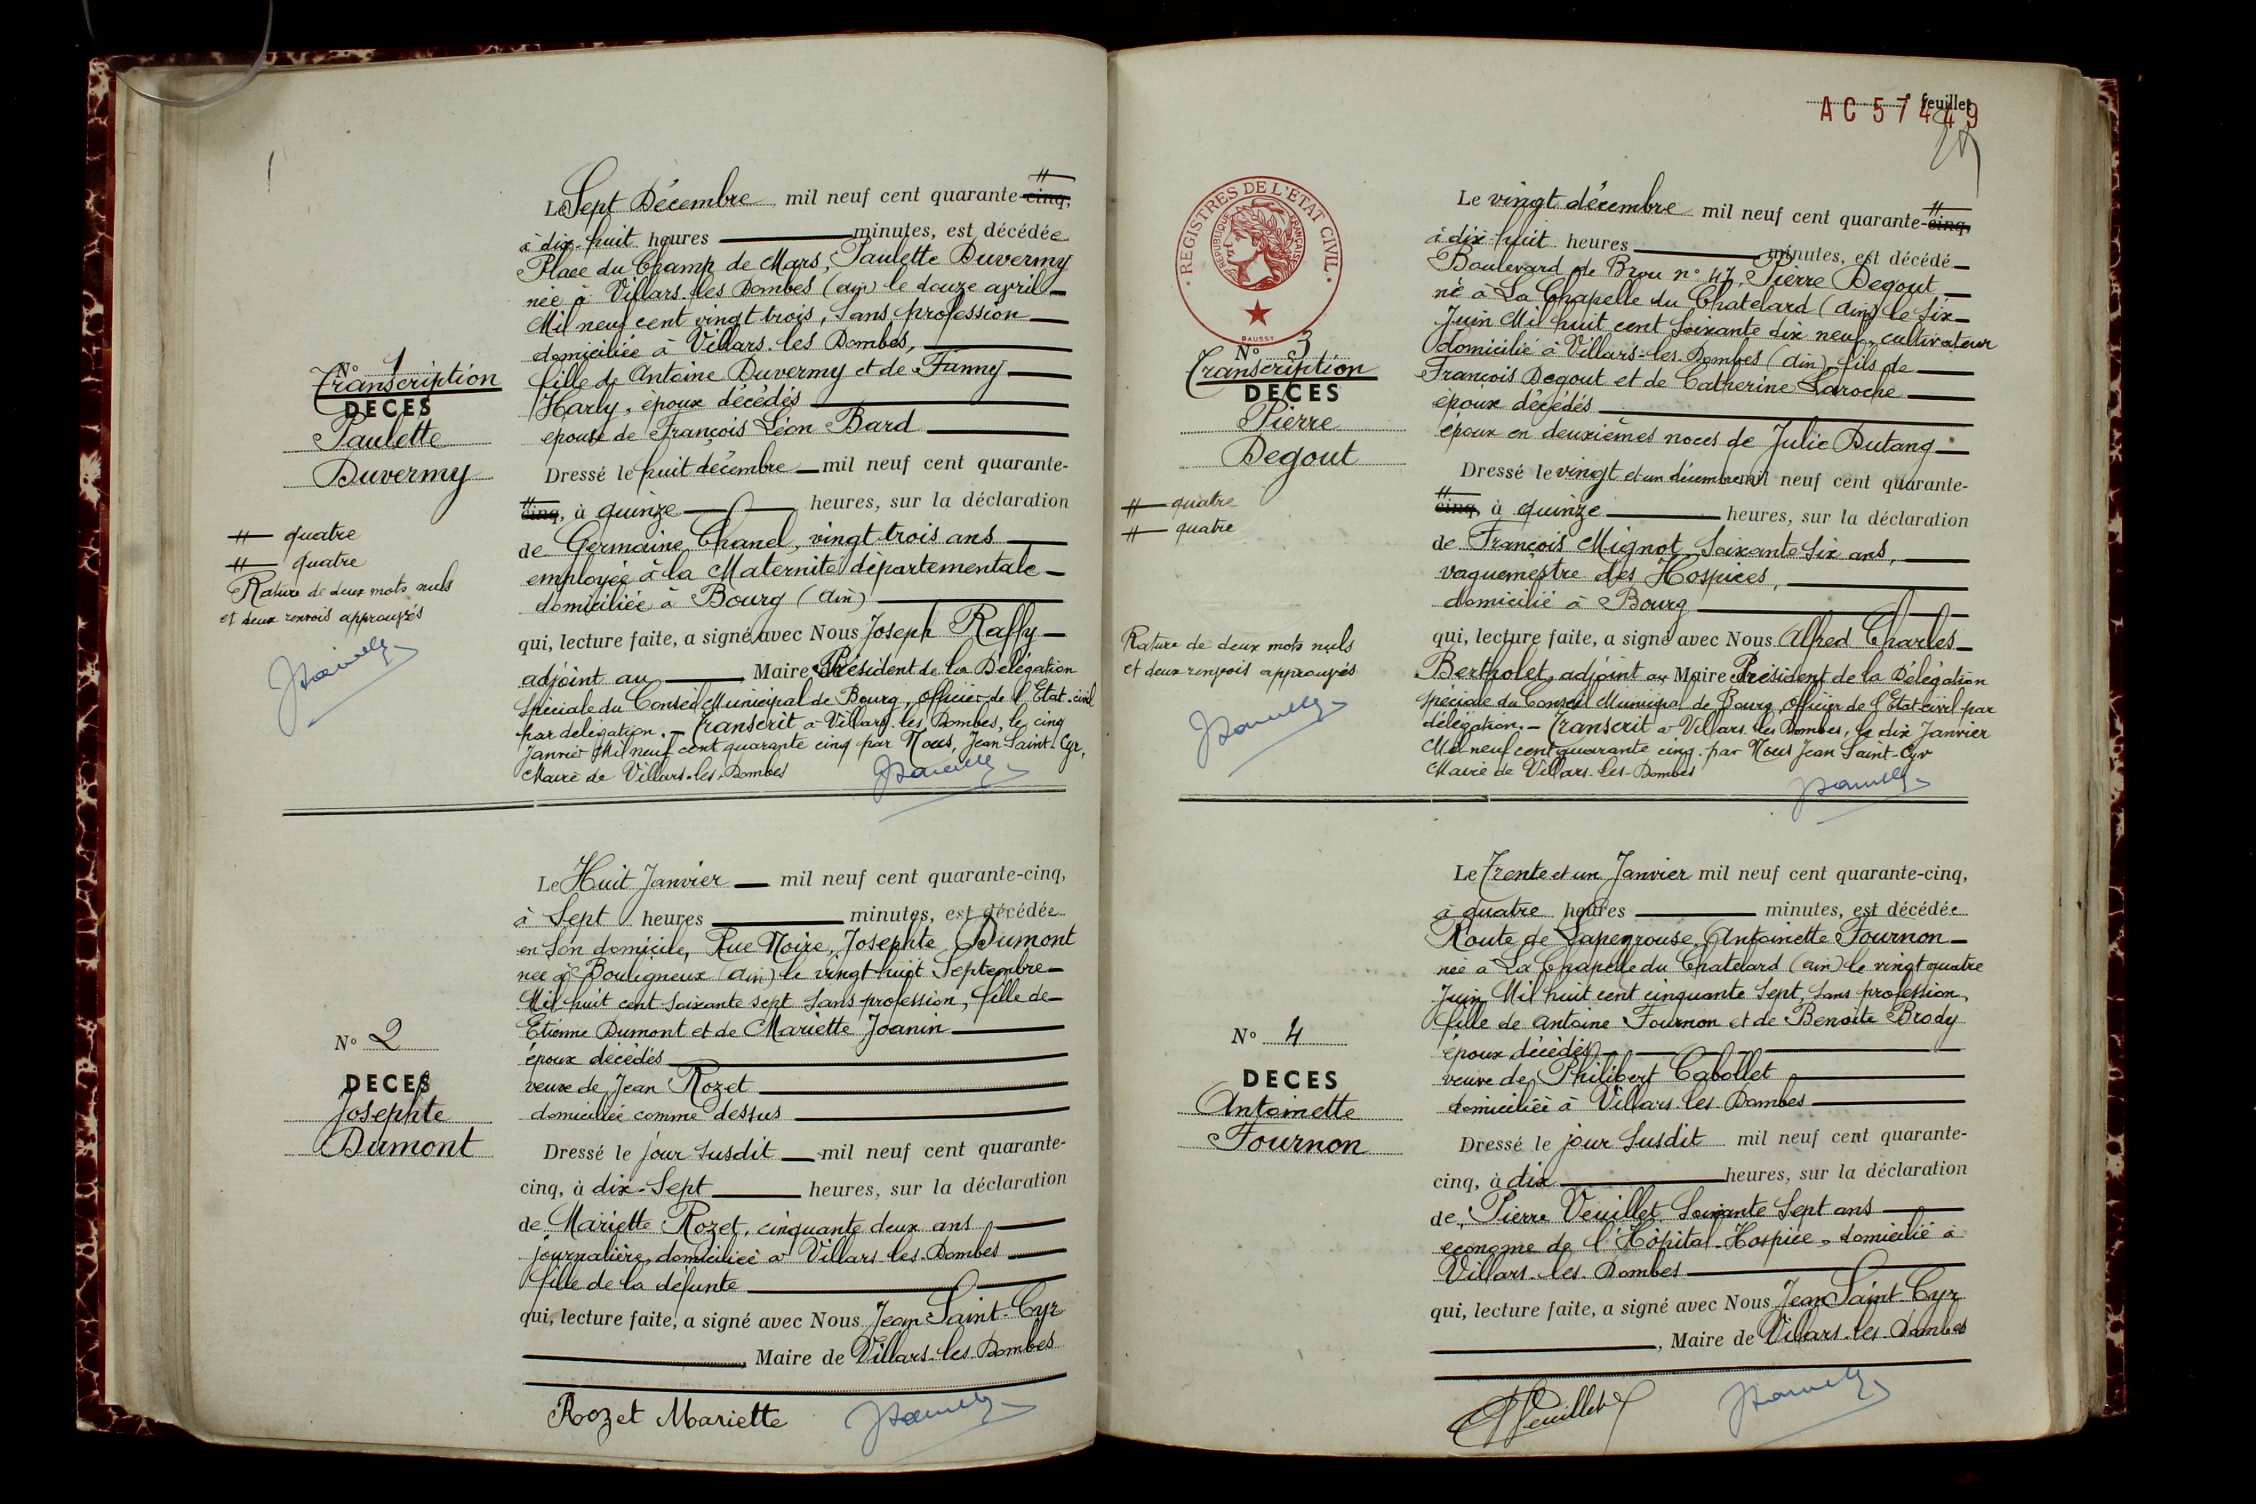 Le Sept Décembre mil neuf cent quarante-cinq,
à dix-huit heures minutes, est décédée
Place du Champ de Mars, Paulette Duvermy
née à Villars-les-Dombes (ain) le douze avril
Mil neuf cent vingt trois, sans profession
domiciliée à Villars-les-Dombes,
fille de Antoine Duvermy et de Fanny
Harly, époux décédés
épouse de François Léon Bard
N° 1
Transcription
DECES
Paulette
Duvermy
Dressé le huit décembre mil neuf cent quarante-
cinq, à quinze heures, sur la déclaration
de Germaine Chanel, vingt-trois ans
employée à la Maternité départementale
domiciliée à Bourg (ain)
qui, lecture faite, a signé avec Nous Joseph Raffy
adjoint au Maire Président de la Délégation
Spéciale du Conseil Municipal de Bourg, Officier de l'Etat-civil
par délégation. – Transcrit à Villars-les-Dombes, le cinq
Janvier Mil neuf cent quarante cinq par Nous, Jean Saint-Cyr,
Maire de Villars-les-Dombes
# quatre
# quatre
Rature de deux mots nuls
et deux renvois approuvés
Le Huit Janvier mil neuf cent quarante-cinq,
à Sept heures minutes, est décédée
en son domicile, Rue Noire, Josephte Dumont
née à Bouligneux (ain) le vingt huit Septembre
Mil huit cent soixante sept sans profession, fille de
Etienne Dumont et de Mariette Joanin
époux décédés
veuve de Jean Rozet
domiciliée comme dessus
N° 2
DECES
Josephte
Dumont
Dressé le jour susdit mil neuf cent quarante-
cinq, à dix-sept heures, sur la déclaration
de Mariette Rozet, cinquante deux ans
journalière, domiciliée à Villars-les-Dombes
fille de la défunte
qui, lecture faite, a signé avec Nous Jean Saint-Cyr
, Maire de Villars-les-Dombes
Rozet Mariette
feuillet
AC 57449
REGISTRES DE L'ETAT CIVIL
REPUBLIQUE FRANÇAISE
DAUSSY
Le vingt décembre mil neuf cent quarante-cinq,
à dix-huit heures minutes, est décédé
Boulevard de Brou n° 47, Pierre Degout
né à La Chapelle du Chatelard (ain) le six
Juin Mil huit cent soixante dix neuf, cultivateur
domicilié à Villars-les-Dombes (ain) fils de
François Degout et de Catherine Laroche
époux décédés
époux en deuxièmes noces de Julie Dutang
N° 3
Transcription
DECES
Pierre
Degout
Dressé le vingt et un décembre mil neuf cent quarante-
cinq, à quinze heures, sur la déclaration
de François Mignot, soixante six ans,
vaguemestre des Hospices,
domicilié à Bourg
qui, lecture faite, a signé avec Nous Alfred Charles
Bertholet, adjoint au Maire Président de la Délégation
spéciale du Conseil Municipal de Bourg, Officier de l'Etat-civil par
délégation. – Transcrit à Villars-les-Dombes, le dix Janvier
Mil neuf cent quarante cinq par Nous Jean Saint-Cyr
Maire de Villars-les-Dombes
# quatre
# quatre
Rature de deux mots nuls
et deux renvois approuvés
Le Trente et un Janvier mil neuf cent quarante-cinq,
à quatre heures minutes, est décédée
Route de Lapeyrouse, Antoinette Fournon
née à La Chapelle du Chatelard (ain) le vingt quatre
Juin Mil huit cent cinquante sept, sans profession,
fille de Antoine Fournon et de Benoite Brody
époux décédés
veuve de Philibert Cabollet
domiciliée à Villars-les-Dombes
N° 4
DECES
Antoinette
Fournon
Dressé le jour susdit mil neuf cent quarante-
cinq, à dix heures, sur la déclaration
de Pierre Veuillet, Soixante sept ans
économe de l'Hôpital-Hospice, domicilié à
Villars-les-Dombes
qui, lecture faite, a signé avec Nous Jean Saint-Cyr
, Maire de Villars-les-Dombes
PVeuillet